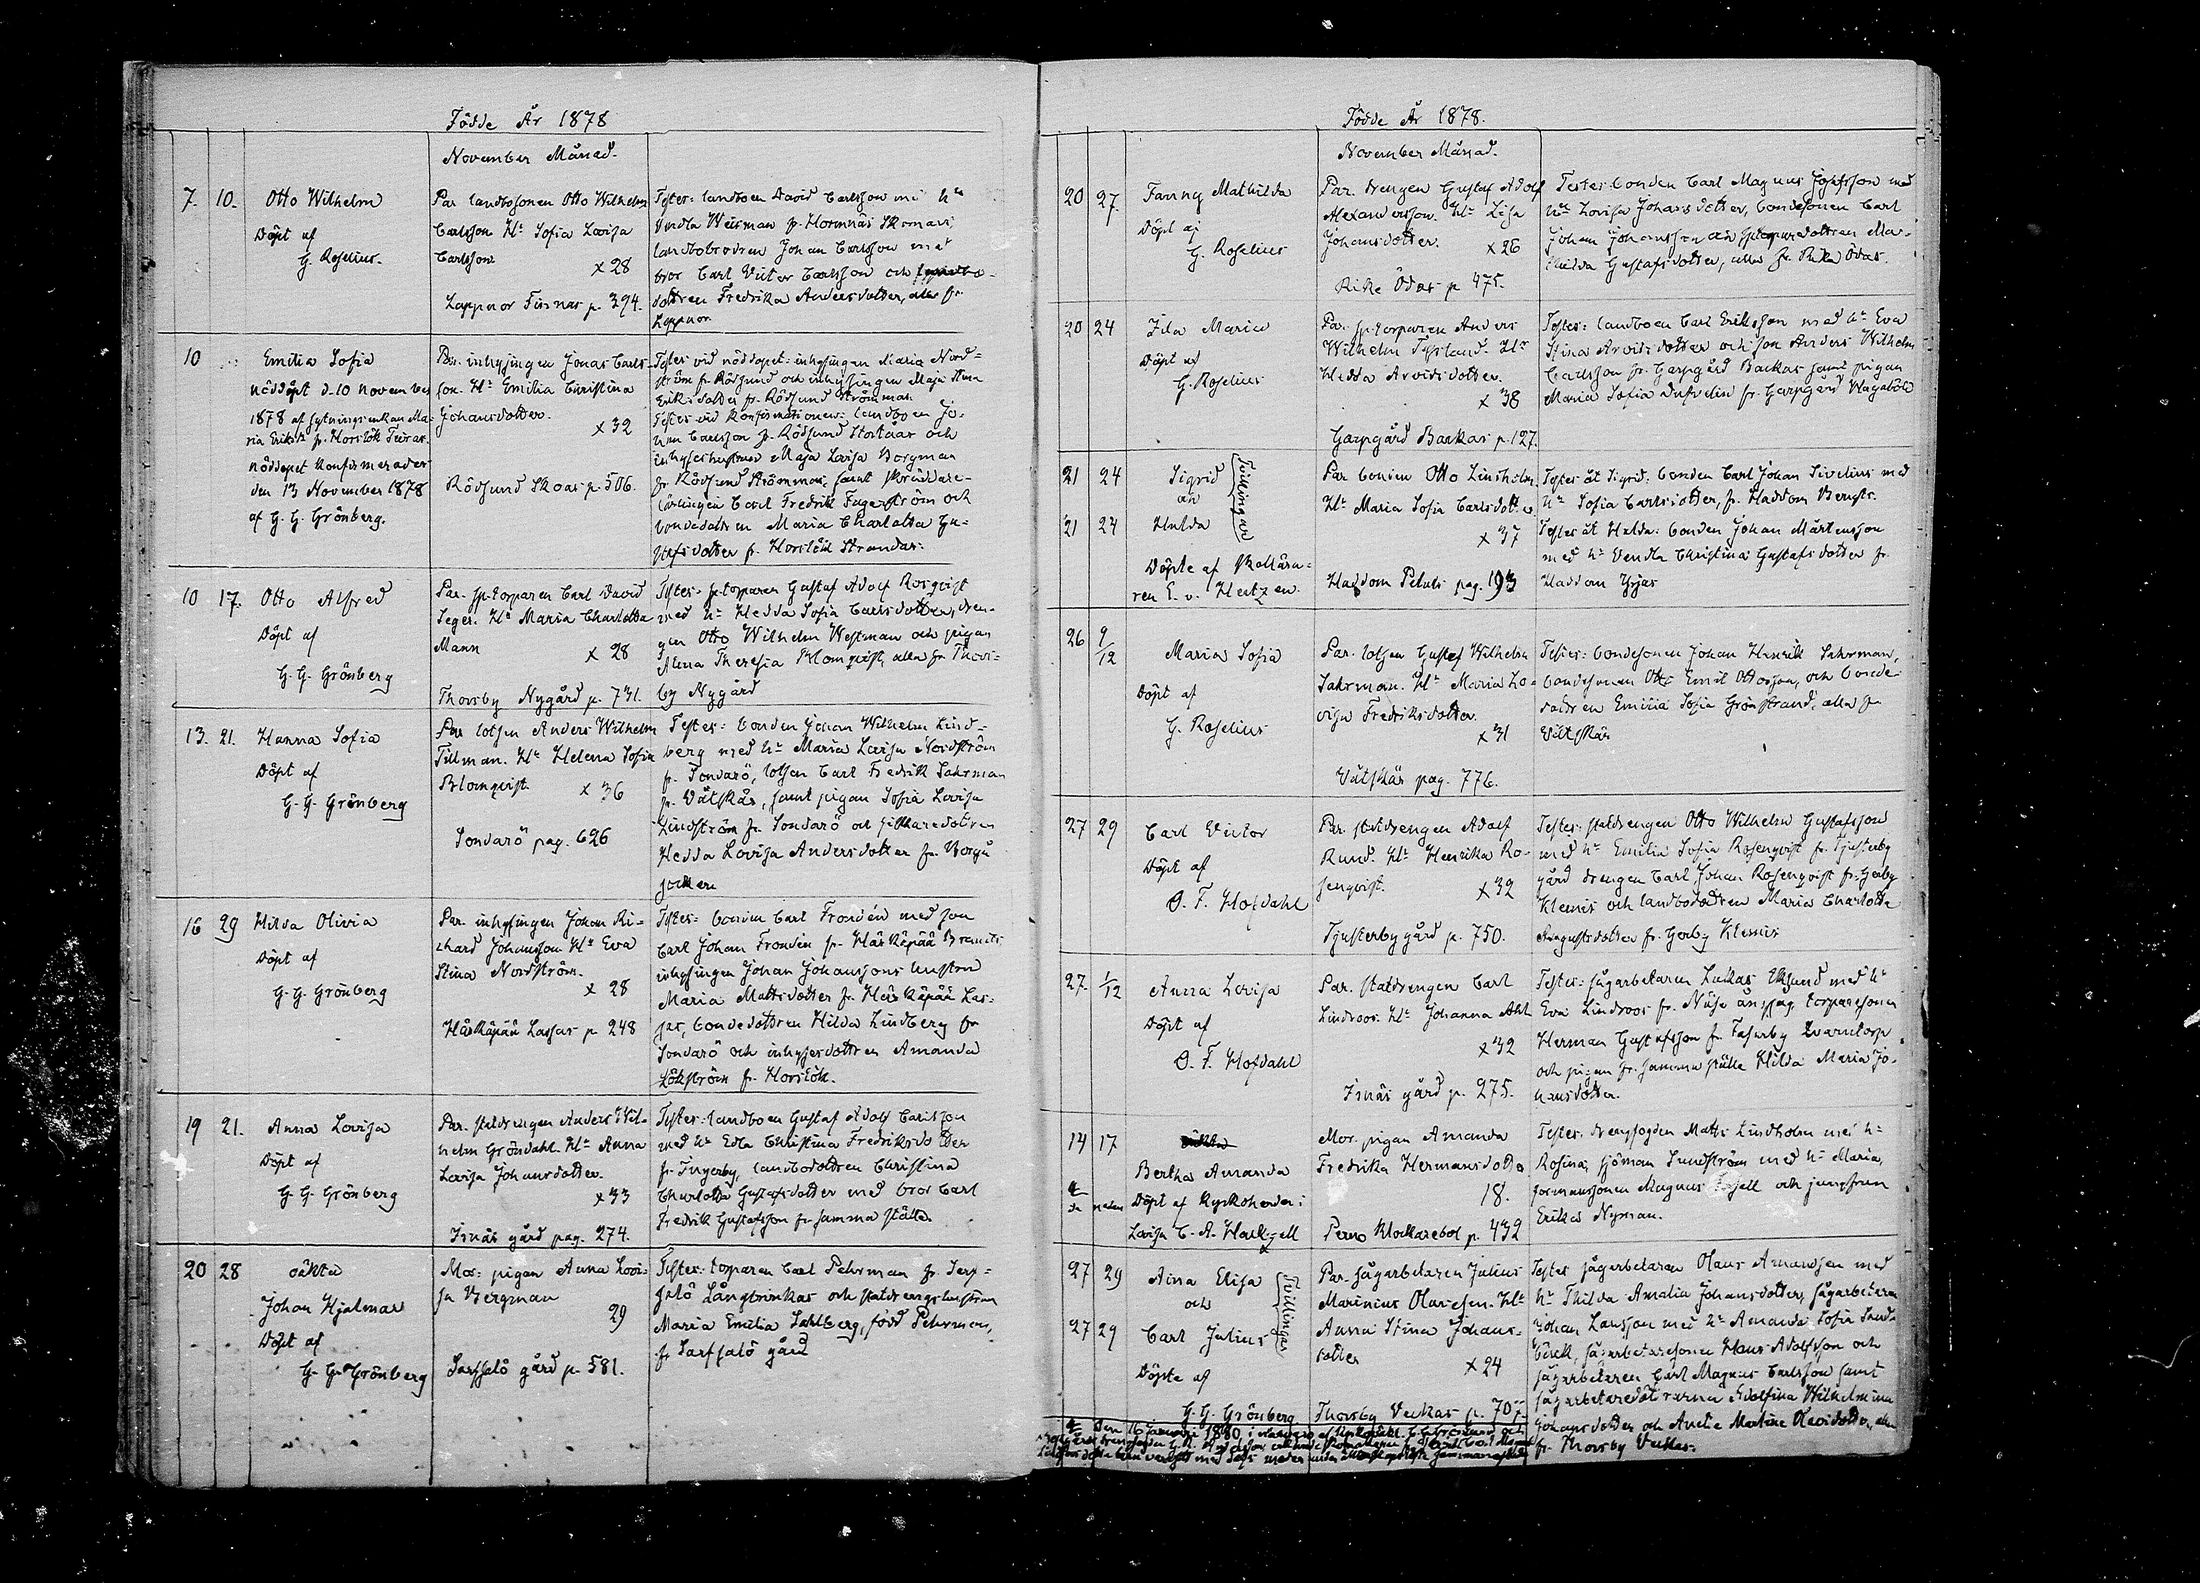 Födde År 1878
November Månad.
7. 10. Otto Wilhelm
Döpt af
G. Roselius.
Par landbosonen Otto Wilhelm
Carlsson H: Sofia Lovisa
Carlsson
x 28
Lappnor Finnas p. 394.
Tester: landboen David Carlsson m: h:
Vendla Weisman fr. Hormnäs
landbobrodren Johan Carlsson med
bror Carl Victor Carlsson och
dottren Fredrika Andersdotter, alla fr.
Lappnor
10 Emilia Sofia
nöddöpt d. 10 November
1878 af sytningsenkan Ma-
ria Eriks fr. Horslök
nöddopet konfirmerades
den 13 November 1878
af G. G. Grönberg.
Par. inhysingen Jonas Carls-
son. H: Emilia Christina
Johansdotter.
x 32
Rödsund Skoas p. 506.
Tester vid nöddopet: inhysingen Maria Nord-
ström fr. Rödsund och inhysingen Maja Stina
Eriksdotter fr. Rödsund Strömman
Tester vid konfirmationen: landboen Jo-
han Carlsson fr. Rödsund Storkars och
inhyseshustrun Maja Lovisa Borgman
fr. Rödsund Strömman, samt skräddare-
lärlingen Carl Fredrik Fagerström och
bondedottren Maria Charlotta Gu-
stafsdotter fr. Horslök Strandas:
10 17. Otto Alfred
Döpt af
G. G. Grönberg
Par. sp. torparen Carl David
Seger. H: Maria Charlotta
Mann
x 28
Thorsby Nygård p. 731.
Tester: sp. torparen Gustaf Adolf Rosqvist
med h: Hedda Sofia Carlsdotter, dren-
gen Otto Wilhelm Westman och pigan
Alma Theresia Blomqvist, alla fr. Thors-
by Nygård
13. 21. Hanna Sofia
Döpt af
G. G. Grönberg
Par lotsen Anders Wilhelm
Tillman. H: Helena Sofia
Blomqvist
x 36
Sondarö pag. 626
Tester: bonden Johan Wilhelm Lind-
berg med h: Maria Lovisa Nordström
fr. Sondarö, lotsen Carl Fredrik Sahrman
fr. Våtskär, samt pigan Sofia Lovisa
Lindström fr. Sondarö och fiskaredottren
Hedda Lovisa Andersdotter fr. Borgå
socken
16 29 Hilda Olivia
Döpt af
G. G. Grönberg
Par. inhysingen Johan Ri-
chard Johansson H: Eva
Stina Nordström.
x 28
Härkäpää Lassas p. 248
Tester: bonden Carl Frondén med son
Carl Johan Frondén fr. Härkäpää
inhysingen Johan Johanssons hustru
Maria Mattsdotter fr. Härkäpää Las-
sas, bondedottren Hilda Lindberg fr
Sondarö och inhysesdottren Amanda
Lökström fr. Horslök.
19 21. Anna Lovisa
Döpt af
G. G. Grönberg
Par. statdrengen Anders Wil-
helm Gröndahl. H: Anna
Lovisa Johansdotter.
x 33
Isnäs gård pag. 274.
Tester: landboen Gustaf Adolf Carlsson
med h: Edla Christina Fredriksdotter
fr Ingerby, landbodottren Christina
Charlotta Gustafsdotter med bror Carl
Fredrik Gustafsson fr samma ställe.
20 28 oäkta
Johan Hjalmar
Döpt af
G. G. Grönberg
Mor: pigan Anna Lovi-
sa Bergman
29
Sarfsalö gård p. 581.
Tester: torparen Carl Pehrman fr. Sarf-
salö Långbrinkas och statdrengshustrun
Maria Emilia Sahlberg, född Pehrman,
fr Sarfsalö gård
Födde År 1878.
November Månad.
20 27. Fanny Mathilda
Döpt af
G. Roselius
Par. drengen Gustaf Adolf
Alexandersson H: Lisa
Johansdotter.
x 26
Rike Ödas p 475.
Tester: bonden Carl Magnus Josefsson med
h: Lovisa Johansdotter, bondesonen Carl
Johan Johansson och sptorparedottren Ma-
thilda Gustafsdotter, alla fr. Rike Ödas.
20 24 Ida Maria
Döpt af
G. Roselius
Par. sp. torparen Anders
Wilhelm H:
Hedda Arvidsdotter.
x 38
Garpgård Backas p. 127.
Tester: landboen Carl Eriksson med h: Eva
Stina Arvidsdotter och son Anders Wilhelm
Carlsson fr. Garpgård Backas samt pigan
Maria Sofia fr. Garpgård
21 24 Sigrid
och
21 24 Hulda
Tvillingar
Döpte af Skollära-
ren E. v. Hertzen.
Par bonden Otto Lindholm
H: Maria Sofia Carlsdotter
x 37
Haddom Petars pag. 193
Tester åt Sigrid: bonden Carl Johan Sivelius med
h: Sofia Carlsdotter, fr. Haddom Bengts
Tester åt Hulda: bonden Johan Mårtensson
med h: Vendla Christina Gustafsdotter fr.
Haddom
26 9/12 Maria Sofia
Döpt af
G. Roselius
Par. lotsen Gustaf Wilhelm
Sahrman. H: Maria Lo-
visa Fredriksdotter
x 31
Våtskär pag. 776.
Tester: bondesonen Johan Henrik Sahrman,
bondesonen Otto Emil Ottosson, och bonde-
dottren Emilia Sofia Grönstrand, alla fr
Våtskär
27 29 Carl Victor
Döpt af
O. F. Hofdahl
Par. statdrengen Adolf
Rund. H: Henrika Ro-
senqvist.
x 32
Tjusterby gård p. 750.
Tester: statdrengen Otto Wilhelm Gustafsson
med h: Emilia Sofia Rosenqvist fr. Tjusterby
gård drengen Carl Johan Rosenqvist fr. Gerby
Klemis och landbodottren Maria Charlotta
Augustsdotter fr. Gerby Klemis
27. 1/12 Anna Lovisa
Döpt af
O. F. Hofdahl
Par. statdrengen Carl
Lindroos. H: Johanna Ahl
x 32
Isnäs gård p. 275.
Tester: sågarbetaren Lukas Eklund med h:
Eva Lindroos fr. Näse ångsåg, torparesonen
Herman Gustafsson fr. Fasarby Qvarntorp
och pigan fr. samma ställe Hilda Maria Jo-
hansdotter.
14 17 Bertha Amanda
Döpt af Kyrkoherden i
Lovisa C. A. Harkzell
Mor. pigan Amanda
Fredrika Hermansdotter
18.
Perno Klockarebol p. 432
Tester. drengfogden Matts Lindholm med h:
Rosina, sjöman Sundström med h: Maria,
formanssonen Magnus och jungfrun
Erika Nyman.
27 29 Aina Elisa
och
27 29 Carl Julius
Tvillingar
Döpte af
G. G. Grönberg
Par. sågarbetaren Julius
Marinius Olavesen. H:
Anna Stina Johans-
dotter
x 24
Thorsby Veckas p. 707.
Tester sågarbetaren Olaus Amundsen med
h: Thilda Amalia Johansdotter, sågarbetaren
Johan Larsson med h: Amanda Sofia Sand-
bäck, sågarbetaresonen Hans Adolfsson och
sågarbetaren Carl Magnus Carlsson samt
sågarbetaredöttrarna Adolfina Wilhelmina
Johansdotter och Anetta Martina Olavidotter, alla
fr. Thorsby Veckas.
den 16 januari 1880